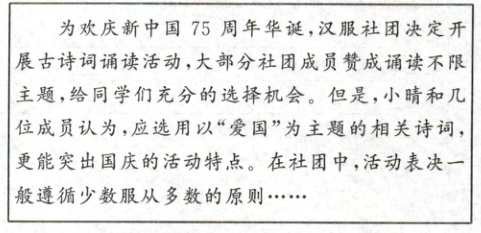 为欢庆新中国 75 周年华诞,汉服社团决定开
展古诗词诵读活动,大部分社团成员赞成诵读不限
主题,给同学们充分的选择机会。但是,小晴和几
位成员认为,应选用以“爱国”为主题的相关诗词,
更能突出国庆的活动特点。在社团中,活动表决一
般遵循少数服从多数的原则……